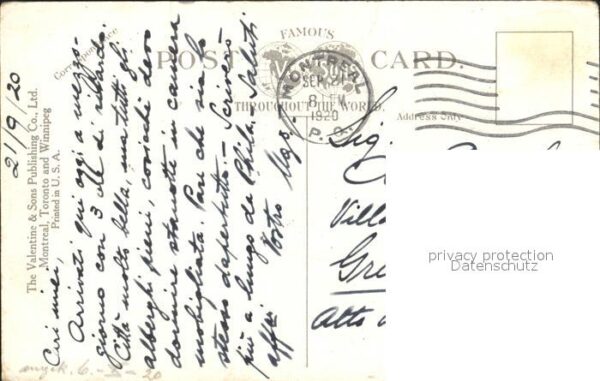 FAMOUS
POST CARD.
THROUGHOUT THE WORLD.
Correspondence
Address Only
MONTREAL
SEP 21
8 PM
1920
P. Q.
The Valentine & Sons Publishing Co., Ltd.
Montreal, Toronto and Winnipeg
Printed in U. S. A.
21/9/20
Cari miei,
Arrivati qui oggi a mezzo-
giorno con 3 ore di ritardo.
Città molto bella, ma tutti gli
alberghi pieni, cosicchè devo
dormire stanotte in camera
mobigliata. Pare che sia lo
stesso dapertutto. Scriverò
più a lungo da Phila. Saluti
affei Vostro Ugo
Sig
Villa
Gre
Alto
privacy protection
Datenschutz